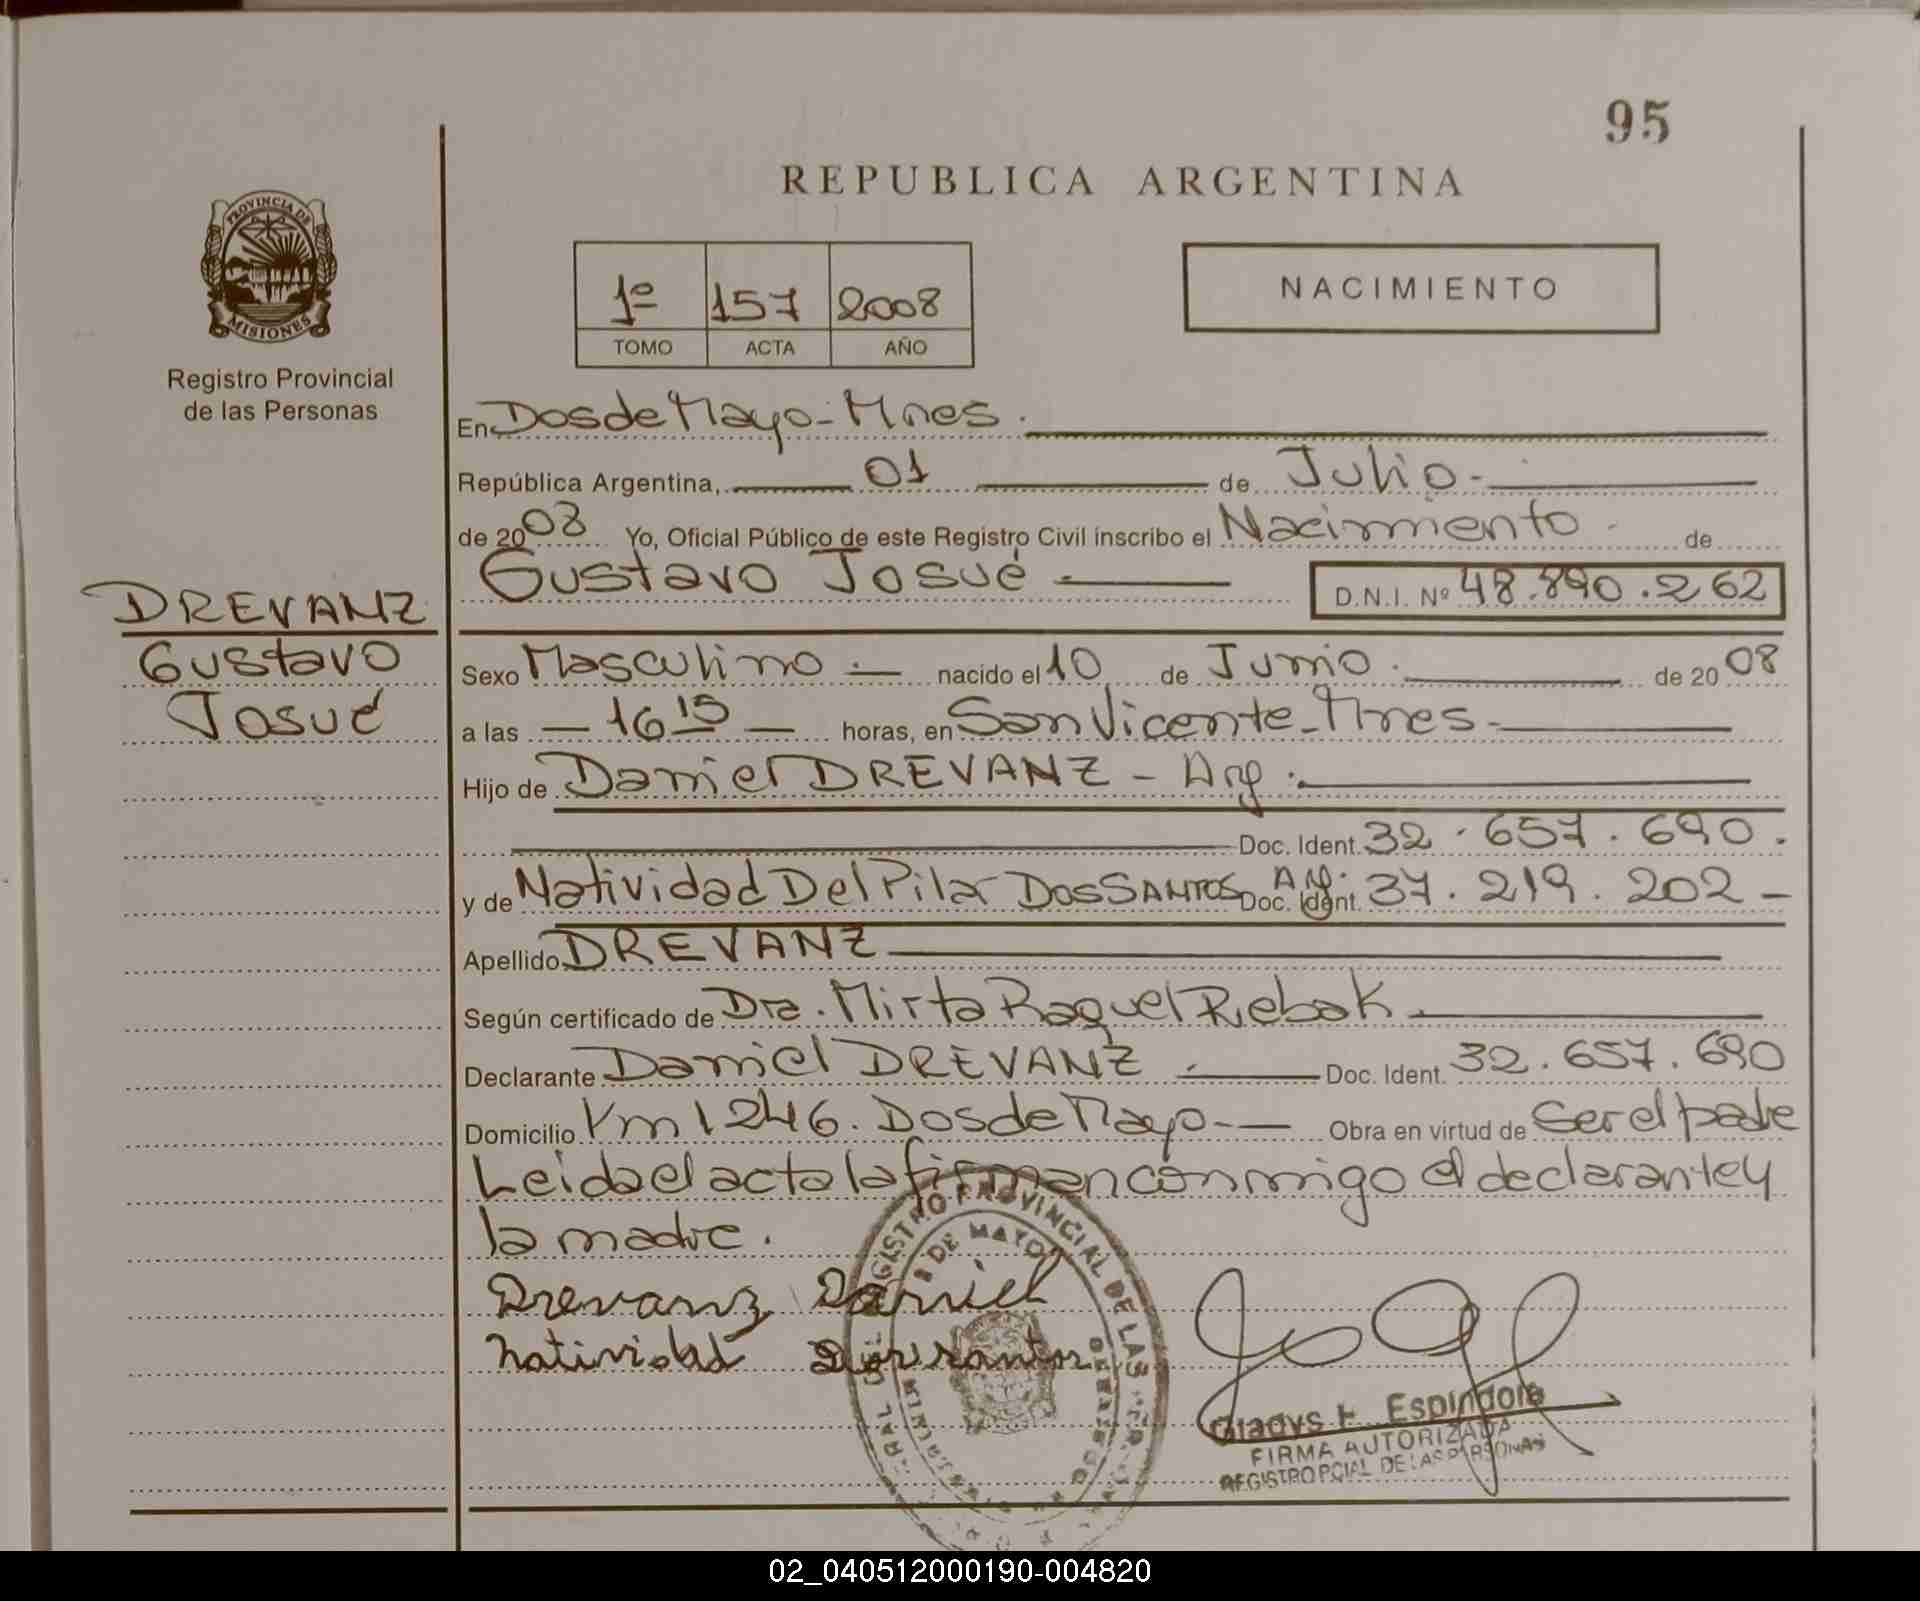 95
REPUBLICA ARGENTINA
PROVINCIA DE
MISIONES
Registro Provincial
de las Personas
1º 157 2008
TOMO ACTA AÑO
NACIMIENTO
En Dos de Mayo - Mnes.
República Argentina, 01 de Julio -
de 2008 Yo, Oficial Público de este Registro Civil inscribo el Nacimiento - de
Gustavo Josué - D.N.I. Nº 48.890.262
DREVANZ
Gustavo
Josué
Sexo Masculino - nacido el 10 de Junio . de 2008
a las - 16 15 - horas, en San Vicente - Mnes -
Hijo de Daniel DREVANZ - Arg.
Doc. Ident. 32.657.690.
y de Natividad Del Pilar DOS SANTOS Arg. Doc. Ident. 37.219.202 -
Apellido DREVANZ
Según certificado de Dra. Mirta Raquel Rebak
Declarante Daniel DREVANZ - Doc. Ident. 32.657.690
Domicilio Km 1246. Dos de Mayo - Obra en virtud de ser el padre
Leida el acta la firman conmigo el declarante y
la madre.
Drevanz Daniel
Natividad
REGISTRO PROVINCIAL DE LAS
DE MAYO
Gladys H. Espindola
FIRMA AUTORIZADA
REGISTRO PCIAL. DE LAS PERSONAS
02_040512000190-004820